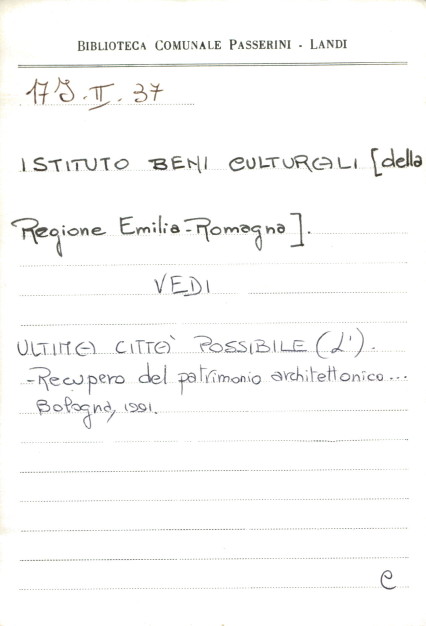 BIBLIOTECA COMUNALE PASSERINI - LANDI
17 J. II. 37
ISTITUTO BENI CULTURALI [della
Regione Emilia-Romagna].
VEDI
ULTIMA CITTA' POSSIBILE (L').
-Recupero del patrimonio architettonico...
Bologna, 1991.
C